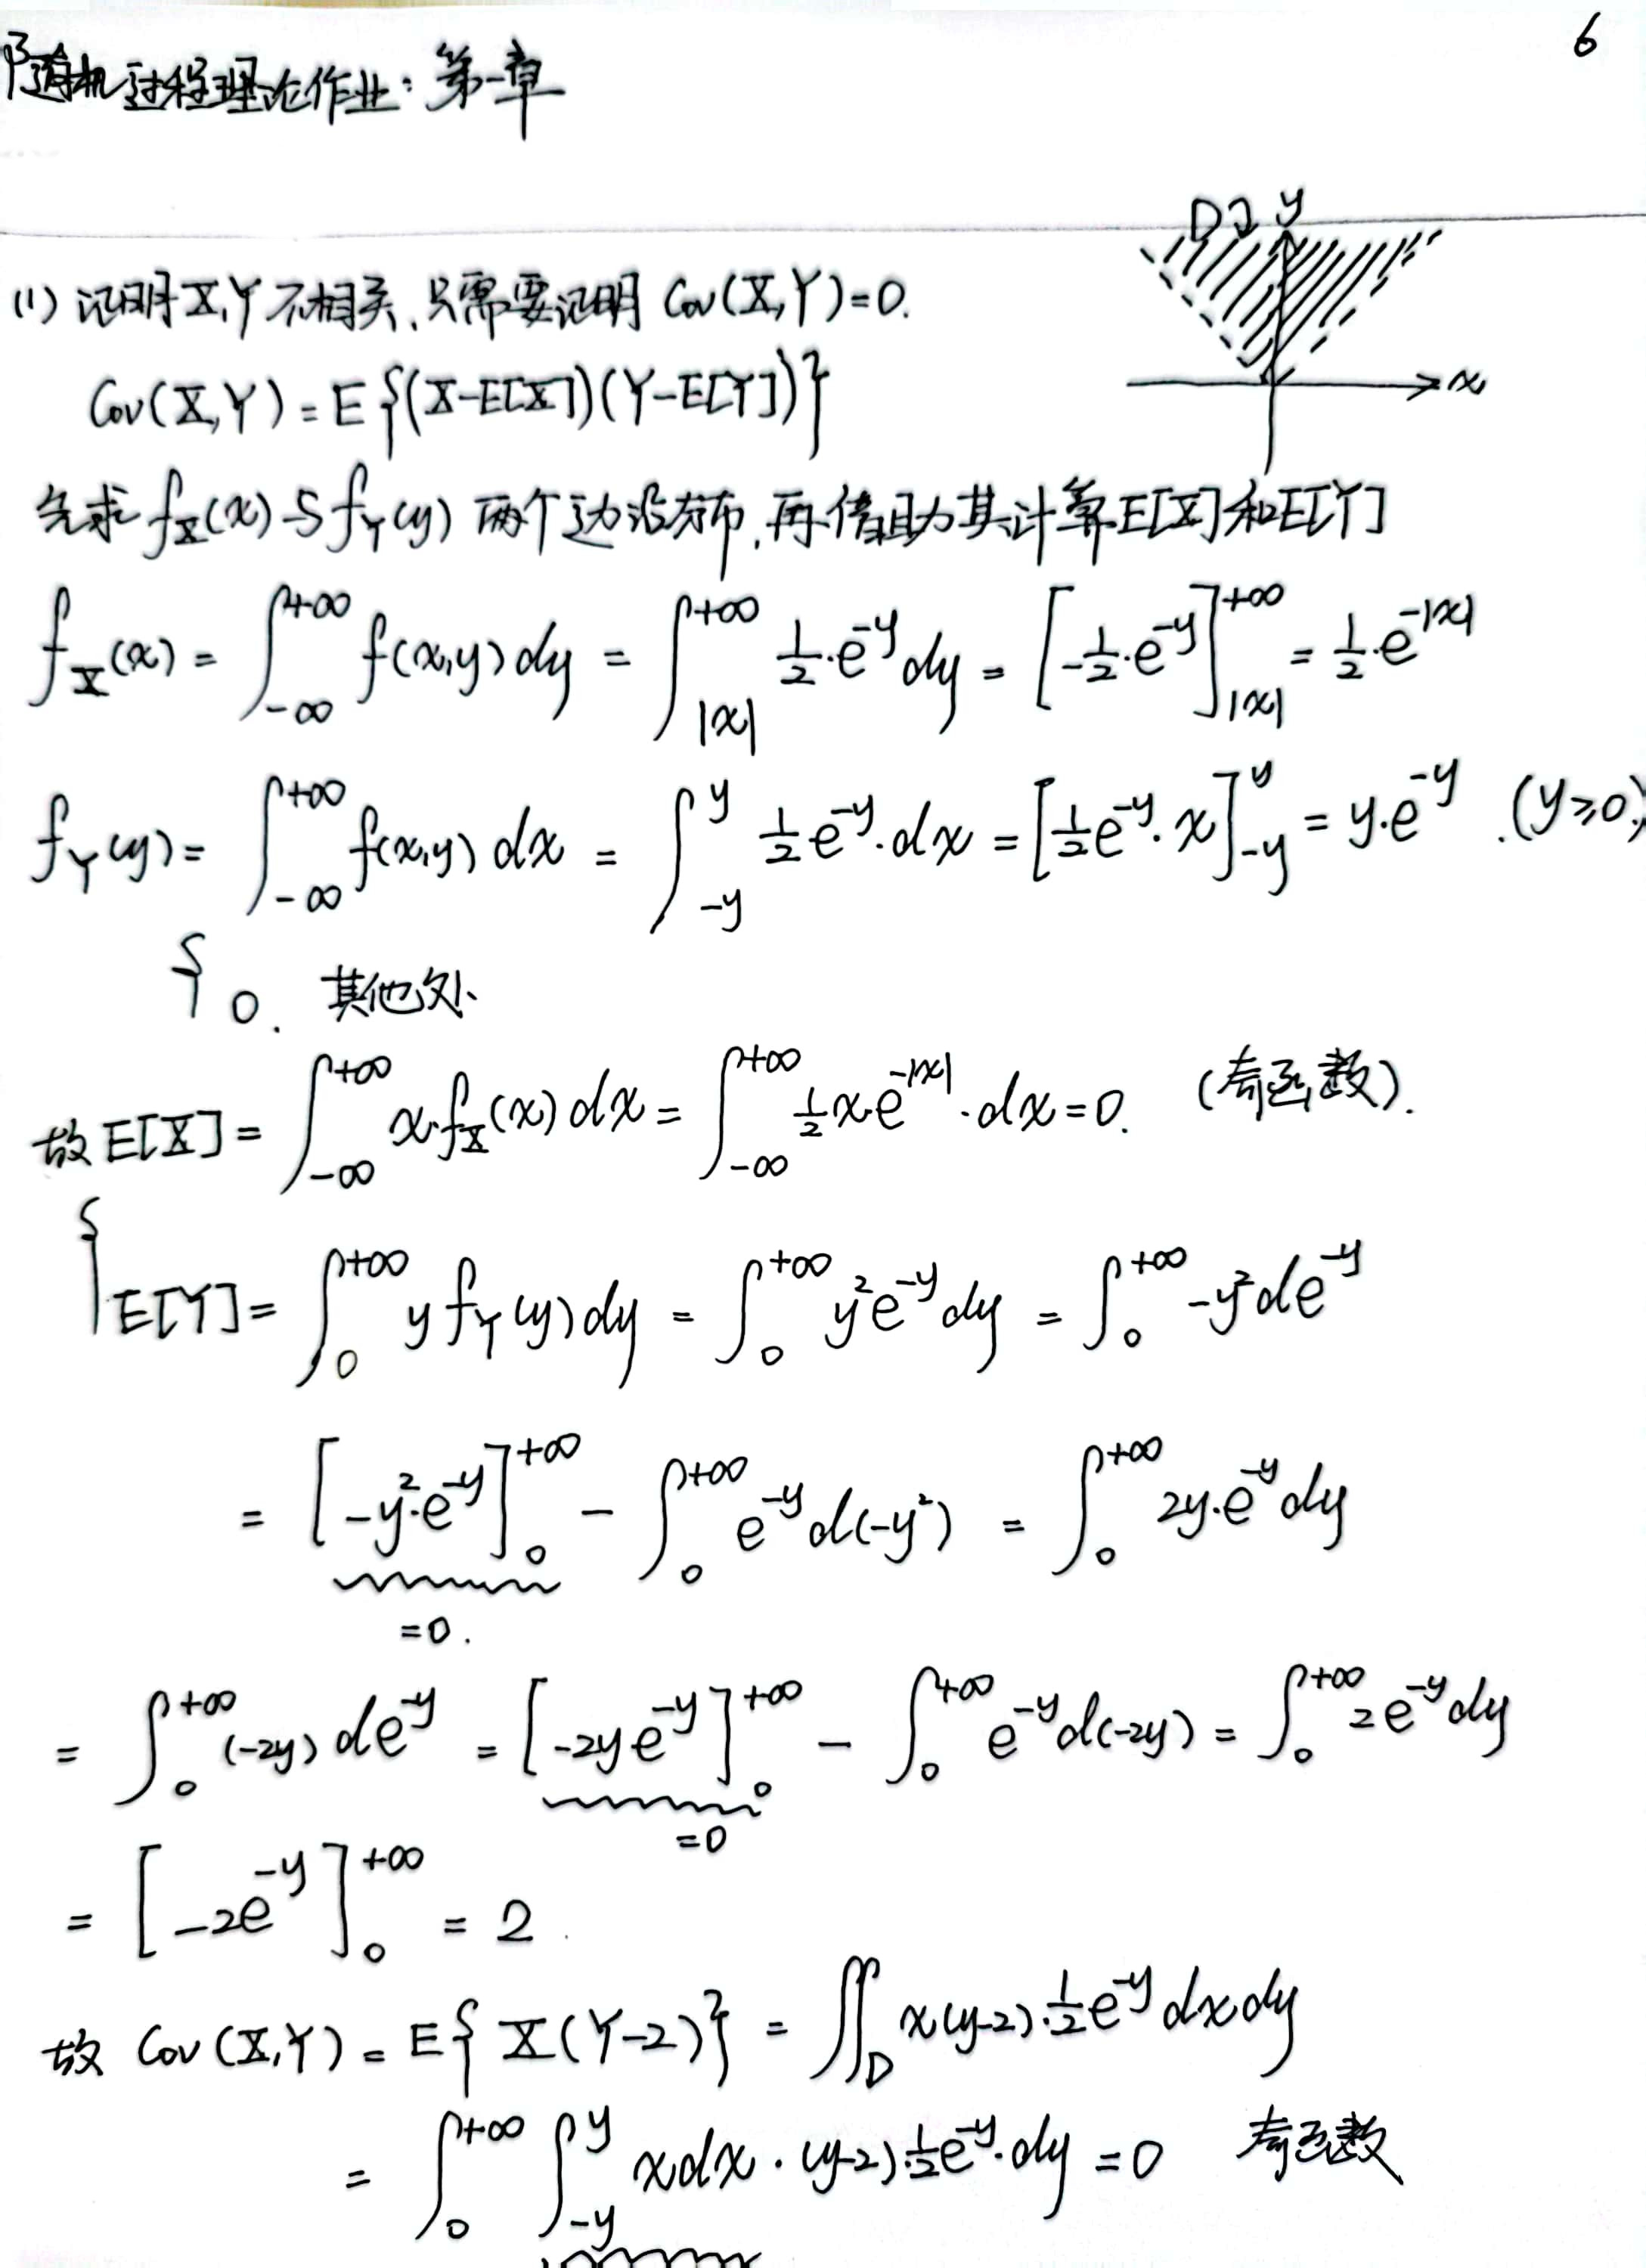 6
随机过程理论作业：第一章
D： y
x
(1) 证明X,Y不相关，只需要证明 Cov(X,Y)=0.
Cov(X,Y) = E{(X-E[X])(Y-E[Y])}
先求 f_X(x) 与 f_Y(y) 两个边沿分布，再借助其计算E[X]和E[Y]
f_X(x) = ∫_{-∞}^{+∞} f(x,y) dy = ∫_{|x|}^{+∞} 1/2·e^{-y} dy = [-1/2·e^{-y}]_{|x|}^{+∞} = 1/2·e^{-|x|}
f_Y(y) = ∫_{-∞}^{+∞} f(x,y) dx = ∫_{-y}^{y} 1/2 e^{-y}·dx = [1/2 e^{-y}·x]_{-y}^{y} = y·e^{-y}. (y≥0)
{ 0. 其他处
故 E[X] = ∫_{-∞}^{+∞} x·f_X(x) dx = ∫_{-∞}^{+∞} 1/2 x·e^{-|x|}·dx = 0. (奇函数).
{ E[Y] = ∫_0^{+∞} y f_Y(y) dy = ∫_0^{+∞} y²e^{-y} dy = ∫_0^{+∞} -y² de^{-y}
= [-y²·e^{-y}]_0^{+∞} - ∫_0^{+∞} e^{-y} d(-y²) = ∫_0^{+∞} 2y·e^{-y} dy
=0.
= ∫_0^{+∞} (-2y) de^{-y} = [-2y e^{-y}]_0^{+∞} - ∫_0^{+∞} e^{-y} d(-2y) = ∫_0^{+∞} 2e^{-y} dy
=0
= [-2e^{-y}]_0^{+∞} = 2.
故 Cov(X,Y) = E{X(Y-2)} = ∬_D x(y-2)·1/2 e^{-y} dxdy
= ∫_0^{+∞} ∫_{-y}^{y} xdx·(y-2)·1/2 e^{-y}·dy = 0 奇函数